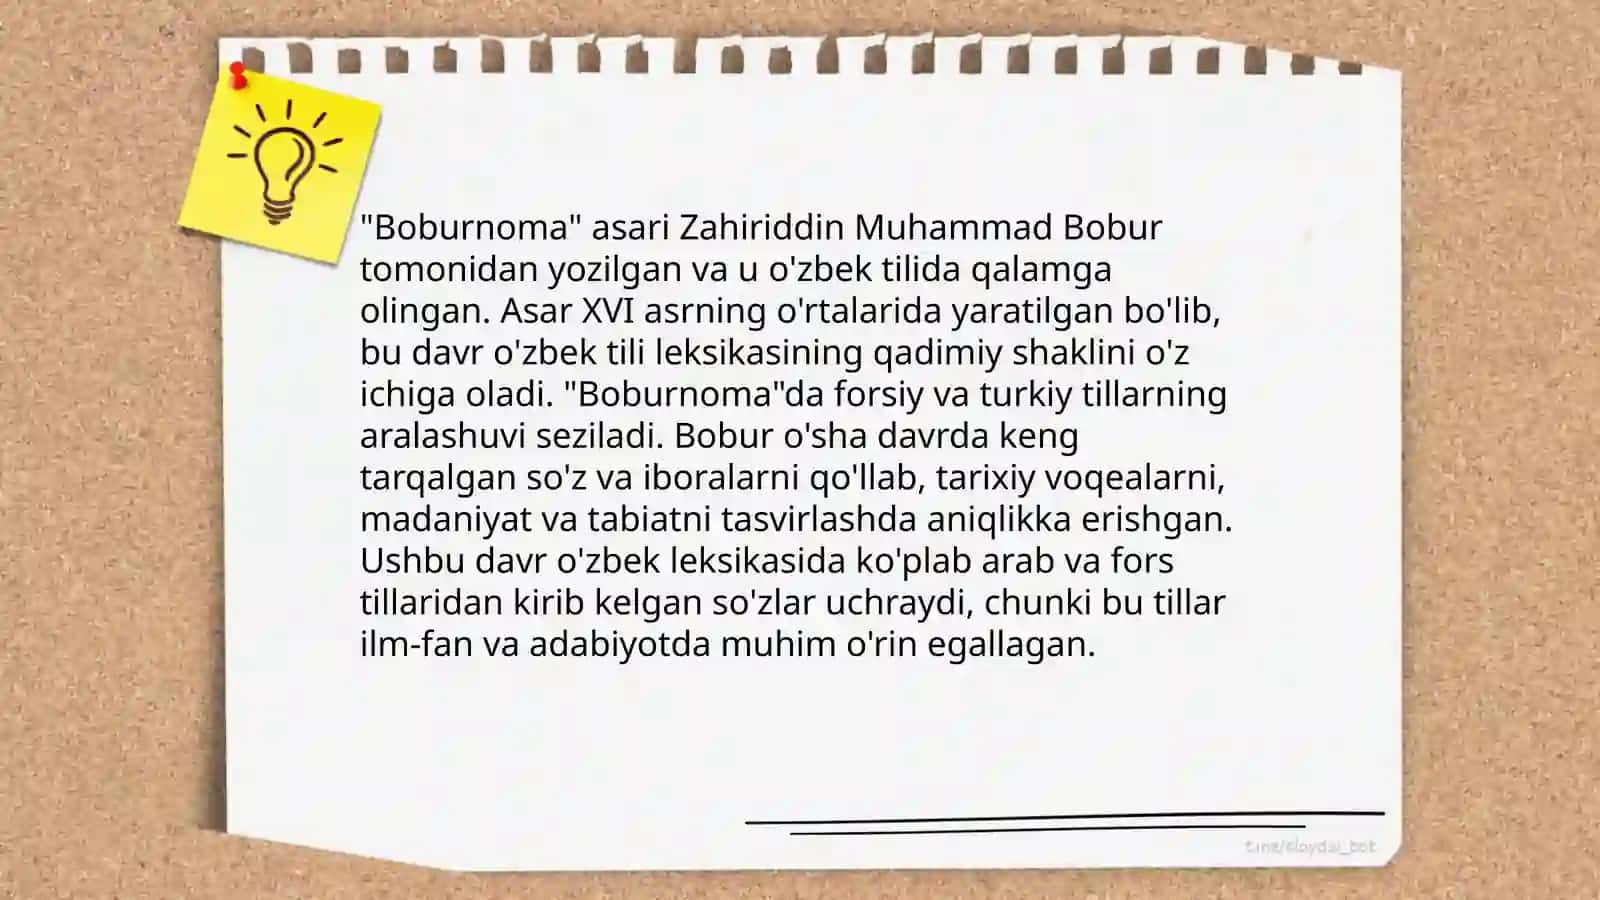 "Boburnoma" asari Zahiriddin Muhammad Bobur
tomonidan yozilgan va u o'zbek tilida qalamga
olingan. Asar XVI asrning o'rtalarida yaratilgan bo'lib,
bu davr o'zbek tili leksikasining qadimiy shaklini o'z
ichiga oladi. "Boburnoma"da forsiy va turkiy tillarning
aralashuvi seziladi. Bobur o'sha davrda keng
tarqalgan so'z va iboralarni qo'llab, tarixiy voqealarni,
madaniyat va tabiatni tasvirlashda aniqlikka erishgan.
Ushbu davr o'zbek leksikasida ko'plab arab va fors
tillaridan kirib kelgan so'zlar uchraydi, chunki bu tillar
ilm-fan va adabiyotda muhim o'rin egallagan.